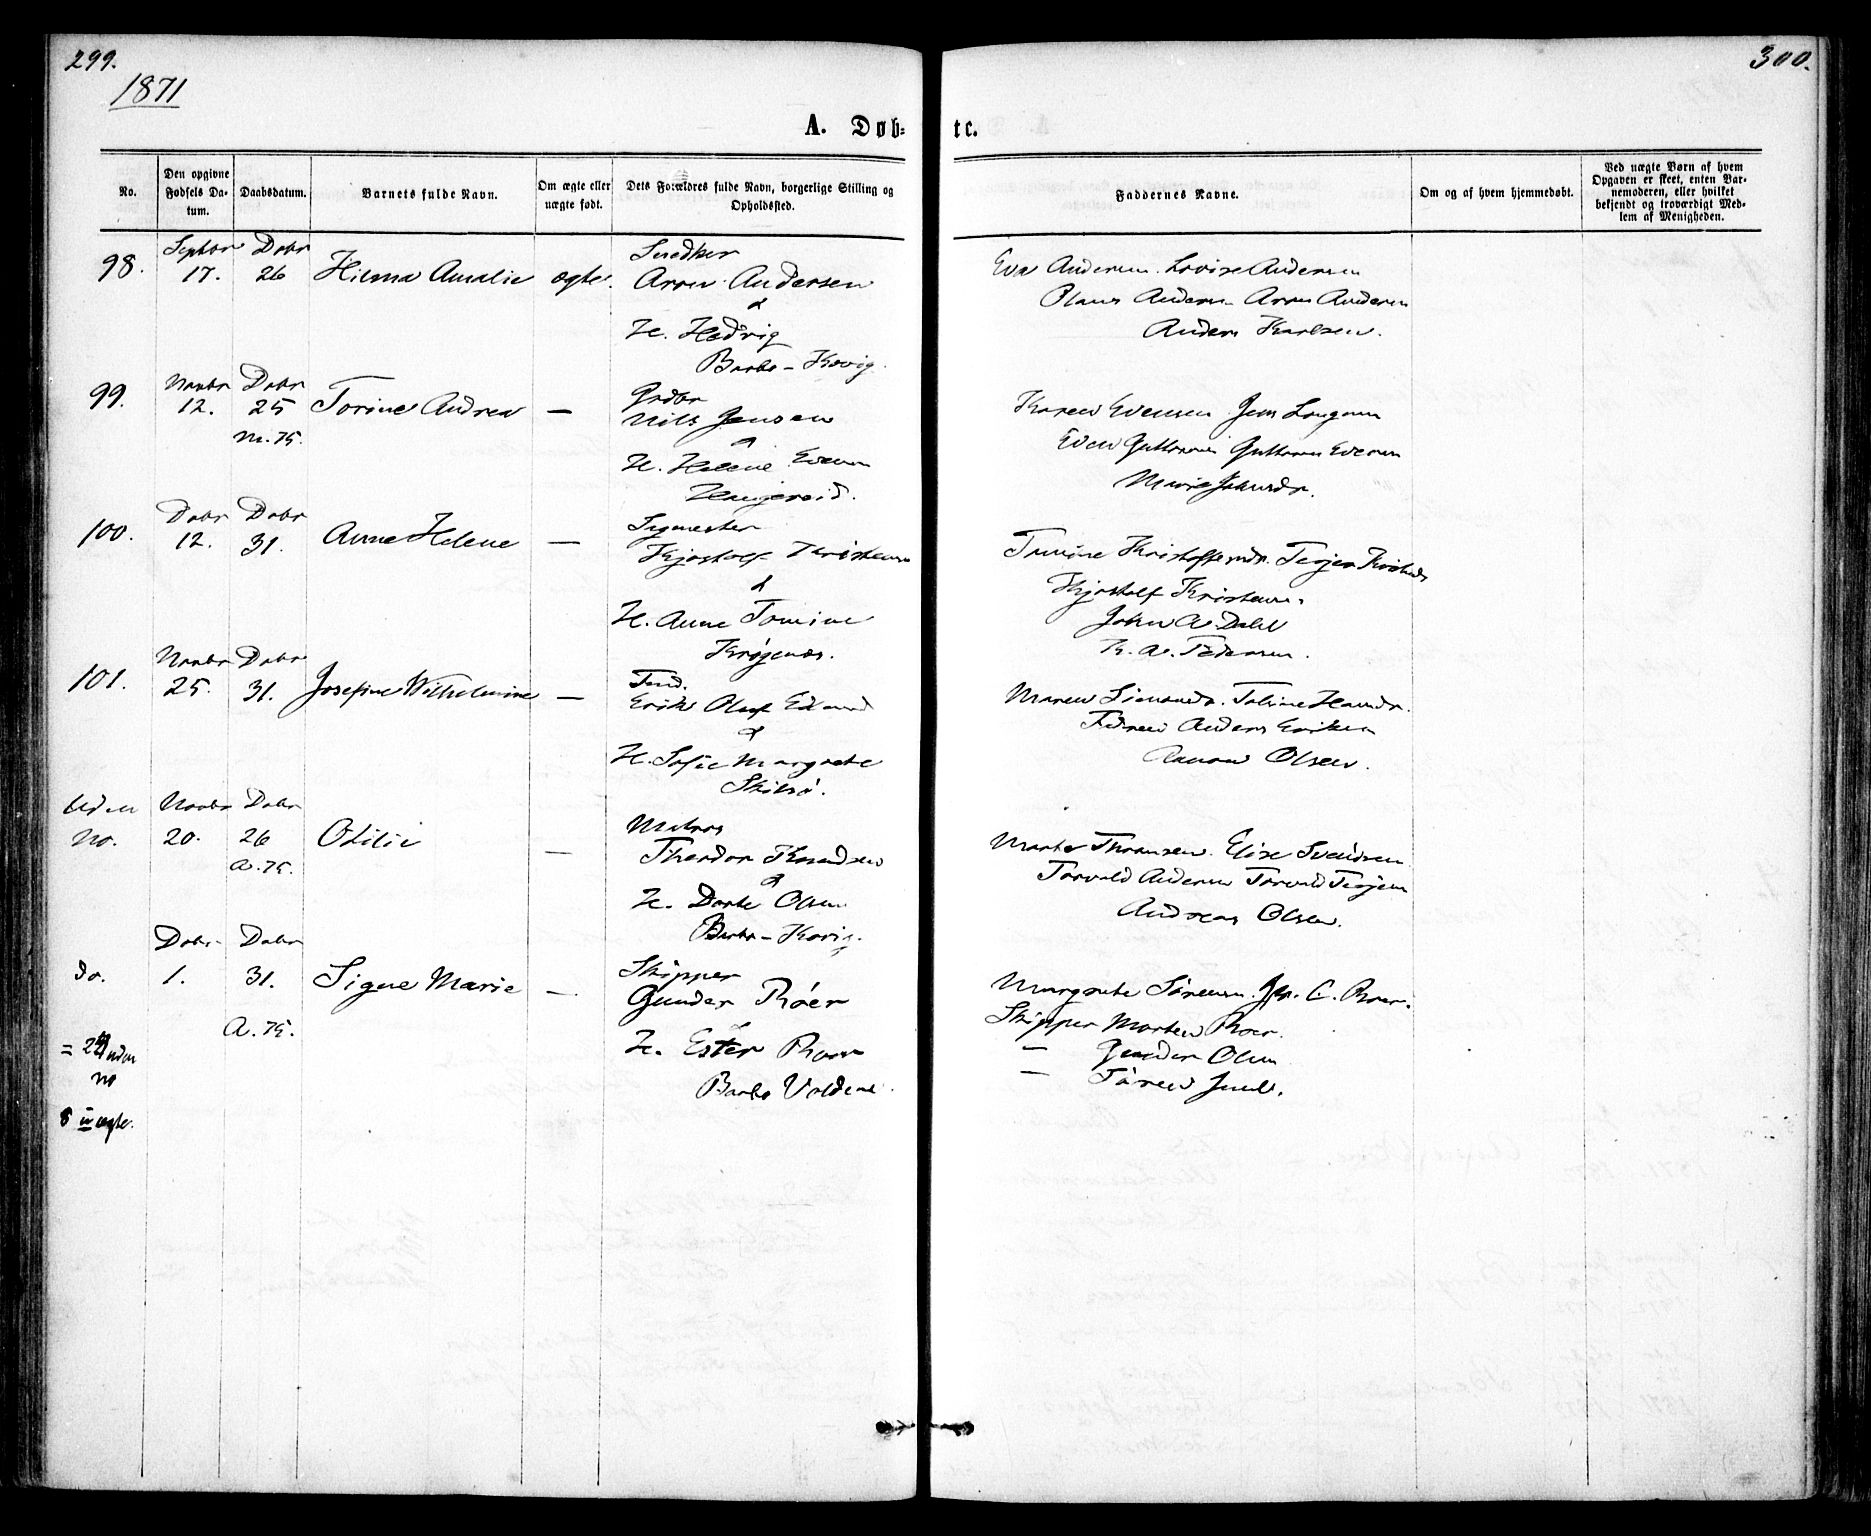 299.
300.
1871
A. Døb-
te.
No.
Den opgivne Fødsels Da-tum.
Daabsdatum.
Barnets fulde Navn.
Om ægte eller uægte født.
Dets Forældres fulde Navn, borgerlige Stilling og Opholdssted.
Faddernes Navne.
Om og af hvem hjemmedøbt.
Ved uægte Børn af hvem Opgaven er skeet, enten Bar-nemoderen, eller hvilket bekjendt og troværdigt Med-lem af Menigheden.
98.
Septbr
17.
Dcbr
26
Hilma Amalie
ægte.
Snedker
Aron Andersen
&
H. Hedvig
Barbo - Kovig.
Eva Andersen. Lovise Andersen
Olaus Andersn - Aron Andersen
Anders Karlsen.
99.
Novbr
12.
Dcbr
25
M. 75.
Torine Andrea
—
Grdbr
Nils Jensen
&
H. Helene Evensen
Karen Evensen. Jens
Even Guttormsen Guttorm Evensen
Marie
100.
Dcbr
12.
Dcbr
31.
Anne Helene
—
Kjøstolf Kristensen
&
H. Anne Tomine
Krøgenæs.
Tomine Kristoffersdr. Terjer
Kjøstolf Kristensen.
John A. Dahl
K. A. Pedersen.
101.
Novbr
25.
Dcbr
31.
Josefine Wilhelmine
—
Erik Olaf
&
H. Sofie Margrete
Skilsø.
Maren Simonsdr. Tobine Hansdr.
Anders Eriksen
Olsen.
Uden
No.
Novbr
20.
Dcbr
26
A. 75.
Otilie
—
Matros
Theodor Knudsen
&
H. Dorte Olsen
Barbo - Kovig.
Marte Thomsen. Elise Svendsen
Torvald Andersen Torvald Terjesen
Andreas Olsen.
do.
Dcbr
1.
Dcbr
31.
A. 75.
Signe Marie
—
Skipper
Gunder Röer
&
H. Ester Roer
Barbo
Margrete Sörensen. C. Roer.
Skipper Morten Roer.
— Gunder Olsen
— Sören Juul.
= 2 uden
no
8 uægte.